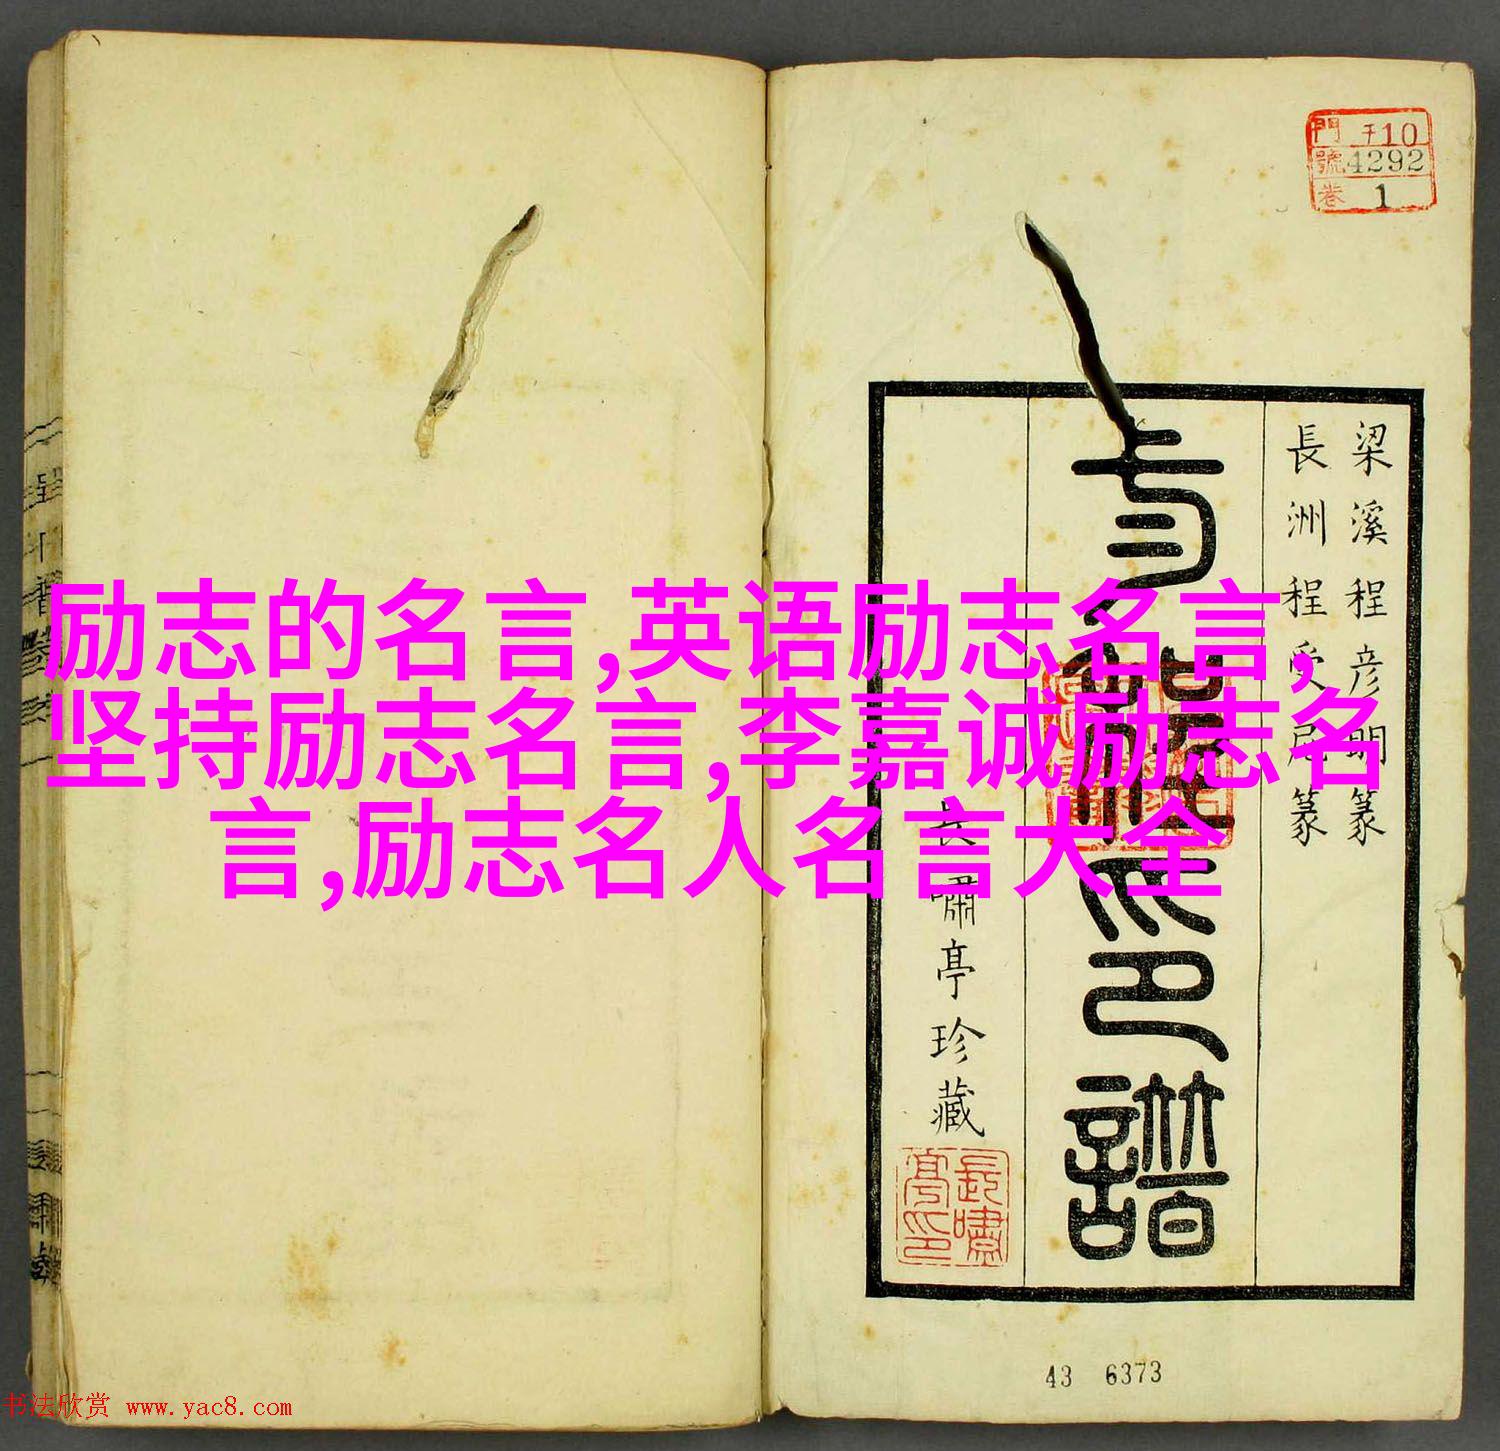 門 千10
號 4292
卷 1
梁溪程彦明篆
長洲程受尼篆
印譜
長嘯亭珍藏
長嘯亭印
励志的名言,英语励志名言,
坚持励志名言,李嘉诚励志名
言,励志名人名言大全
43 6373
书法欣赏 www.yac8.com